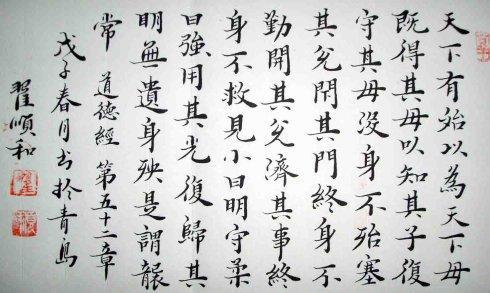 天下有始以為天下母
既得其母以知其子復
守其母沒身不殆塞
其兌閉其門終身不
勤開其兌濟其事終
身不救見小曰明守柔
曰強用其光復歸其
明無遺身殃是謂襲
常 道德經 第五十二章
戊子春月书於青島
翟順和